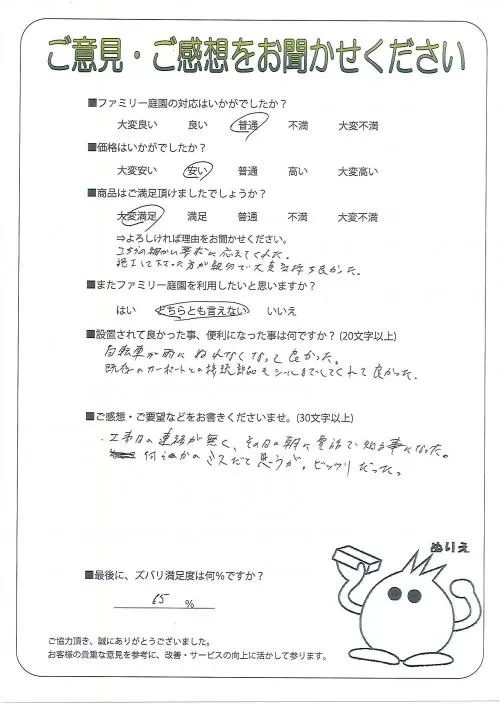 ご意見・ご感想をお聞かせください
■ファミリー庭園の対応はいかがでしたか？
大変良い 良い 普通 不満 大変不満
■価格はいかがでしたか？
大変安い 安い 普通 高い 大変高い
■商品はご満足頂けましたでしょうか？
大変満足 満足 普通 不満 大変不満
⇒よろしければ理由をお聞かせください。
こちらの細かい要求に応えてくれた。
施工して下さった方が親切で大変気持ち良かった。
■またファミリー庭園を利用したいと思いますか？
はい どちらとも言えない いいえ
■設置されて良かった事、便利になった事は何ですか？(20文字以上)
自転車が雨にぬれなくなって良かった。
既存のカーポートとの接続部品もシールまでしてくれて良かった.
■ご感想・ご要望などをお書きくださいませ。(30文字以上)
・工事日の連絡が無く、その日の朝に電話で知る事になった。
何らかのミスだと思うが、ビックリだった。
ぬりえ
■最後に、ズバリ満足度は何%ですか？
65 %
ご協力頂き、誠にありがとうございました。
お客様の貴重な意見を参考に、改善・サービスの向上に活かして参ります。